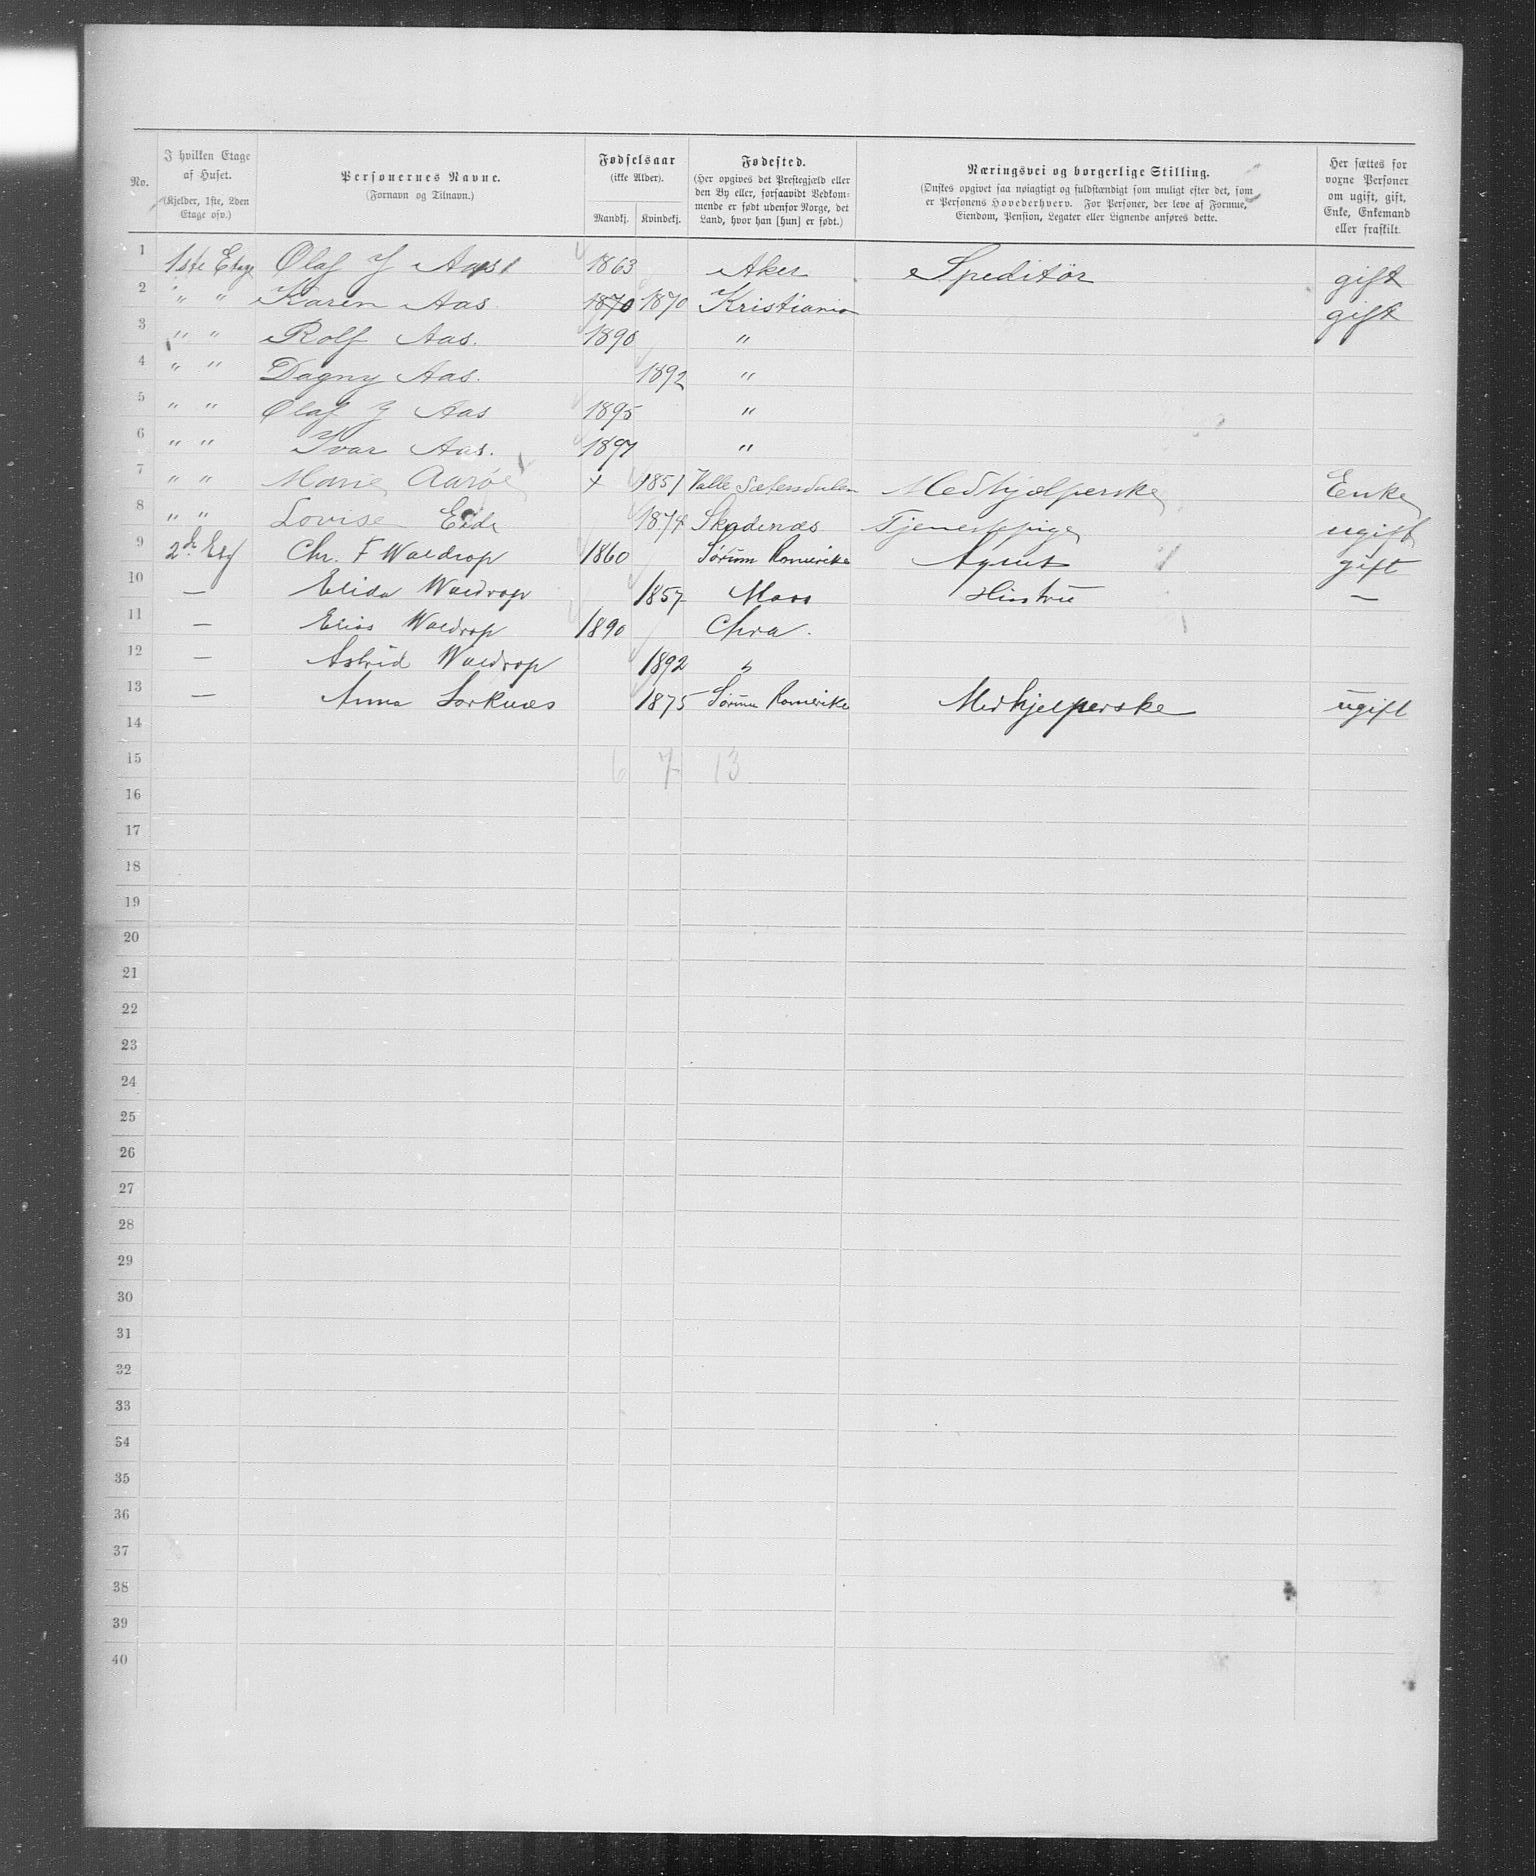 No. I hvilken Etage af Huset. (Kjelder, 1ste, 2den Etage osv.) Personernes Navne. (Fornavn og Tilnavn.) Fødselsaar (ikke Alder). Mandkj. Kvindekj. Fødested. (Her opgives det Prestegjæld eller den By eller, forsaavidt Vedkommende er født udenfor Norge, det Land, hvor han [hun] er født.) Næringsvei og borgerlige Stilling. (Ønskes opgivet saa nøiagtigt og fuldstændigt som muligt efter det, som er Personens Hovederhverv. For Personer, der leve af Formue, Eiendom, Pension, Legater eller Lignende anføres dette. Her sættes for voxne Personer om ugift, gift, Enke, Enkemand eller fraskilt.
1 1ste Etage Olaf J Aas 1863 Aker Speditør gift
2 " " Karen Aas 1870 1870 Kristiania gift
3 " " Rolf Aas. 1890 "
4 " " Dagny Aas. 1892 "
5 " " Olaf J Aas 1895 "
6 " " Ivar Aas. 1897 "
7 " " Marie Aarøe + 1851 Valle Sætersdalen Medhjælperske Enke
8 " " Lovise Eide 1874 Skudenæs Tjenestepige ugift
9 2d Etg Chr. F Waldrop 1860 Sørum Romerike Agent gift
10 — Elida Waldrop 1857 Moss Hustru —
11 — Elias Waldrop 1890 Chra.
12 — Astrid Waldrop 1892 "
13 — Anna Sorknæs 1875 Sørum Romerike Medhjelperske ugift
14
15 6 7 13
16
17
18
19
20
21
22
23
24
25
26
27
28
29
30
31
32
33
34
35
36
37
38
39
40